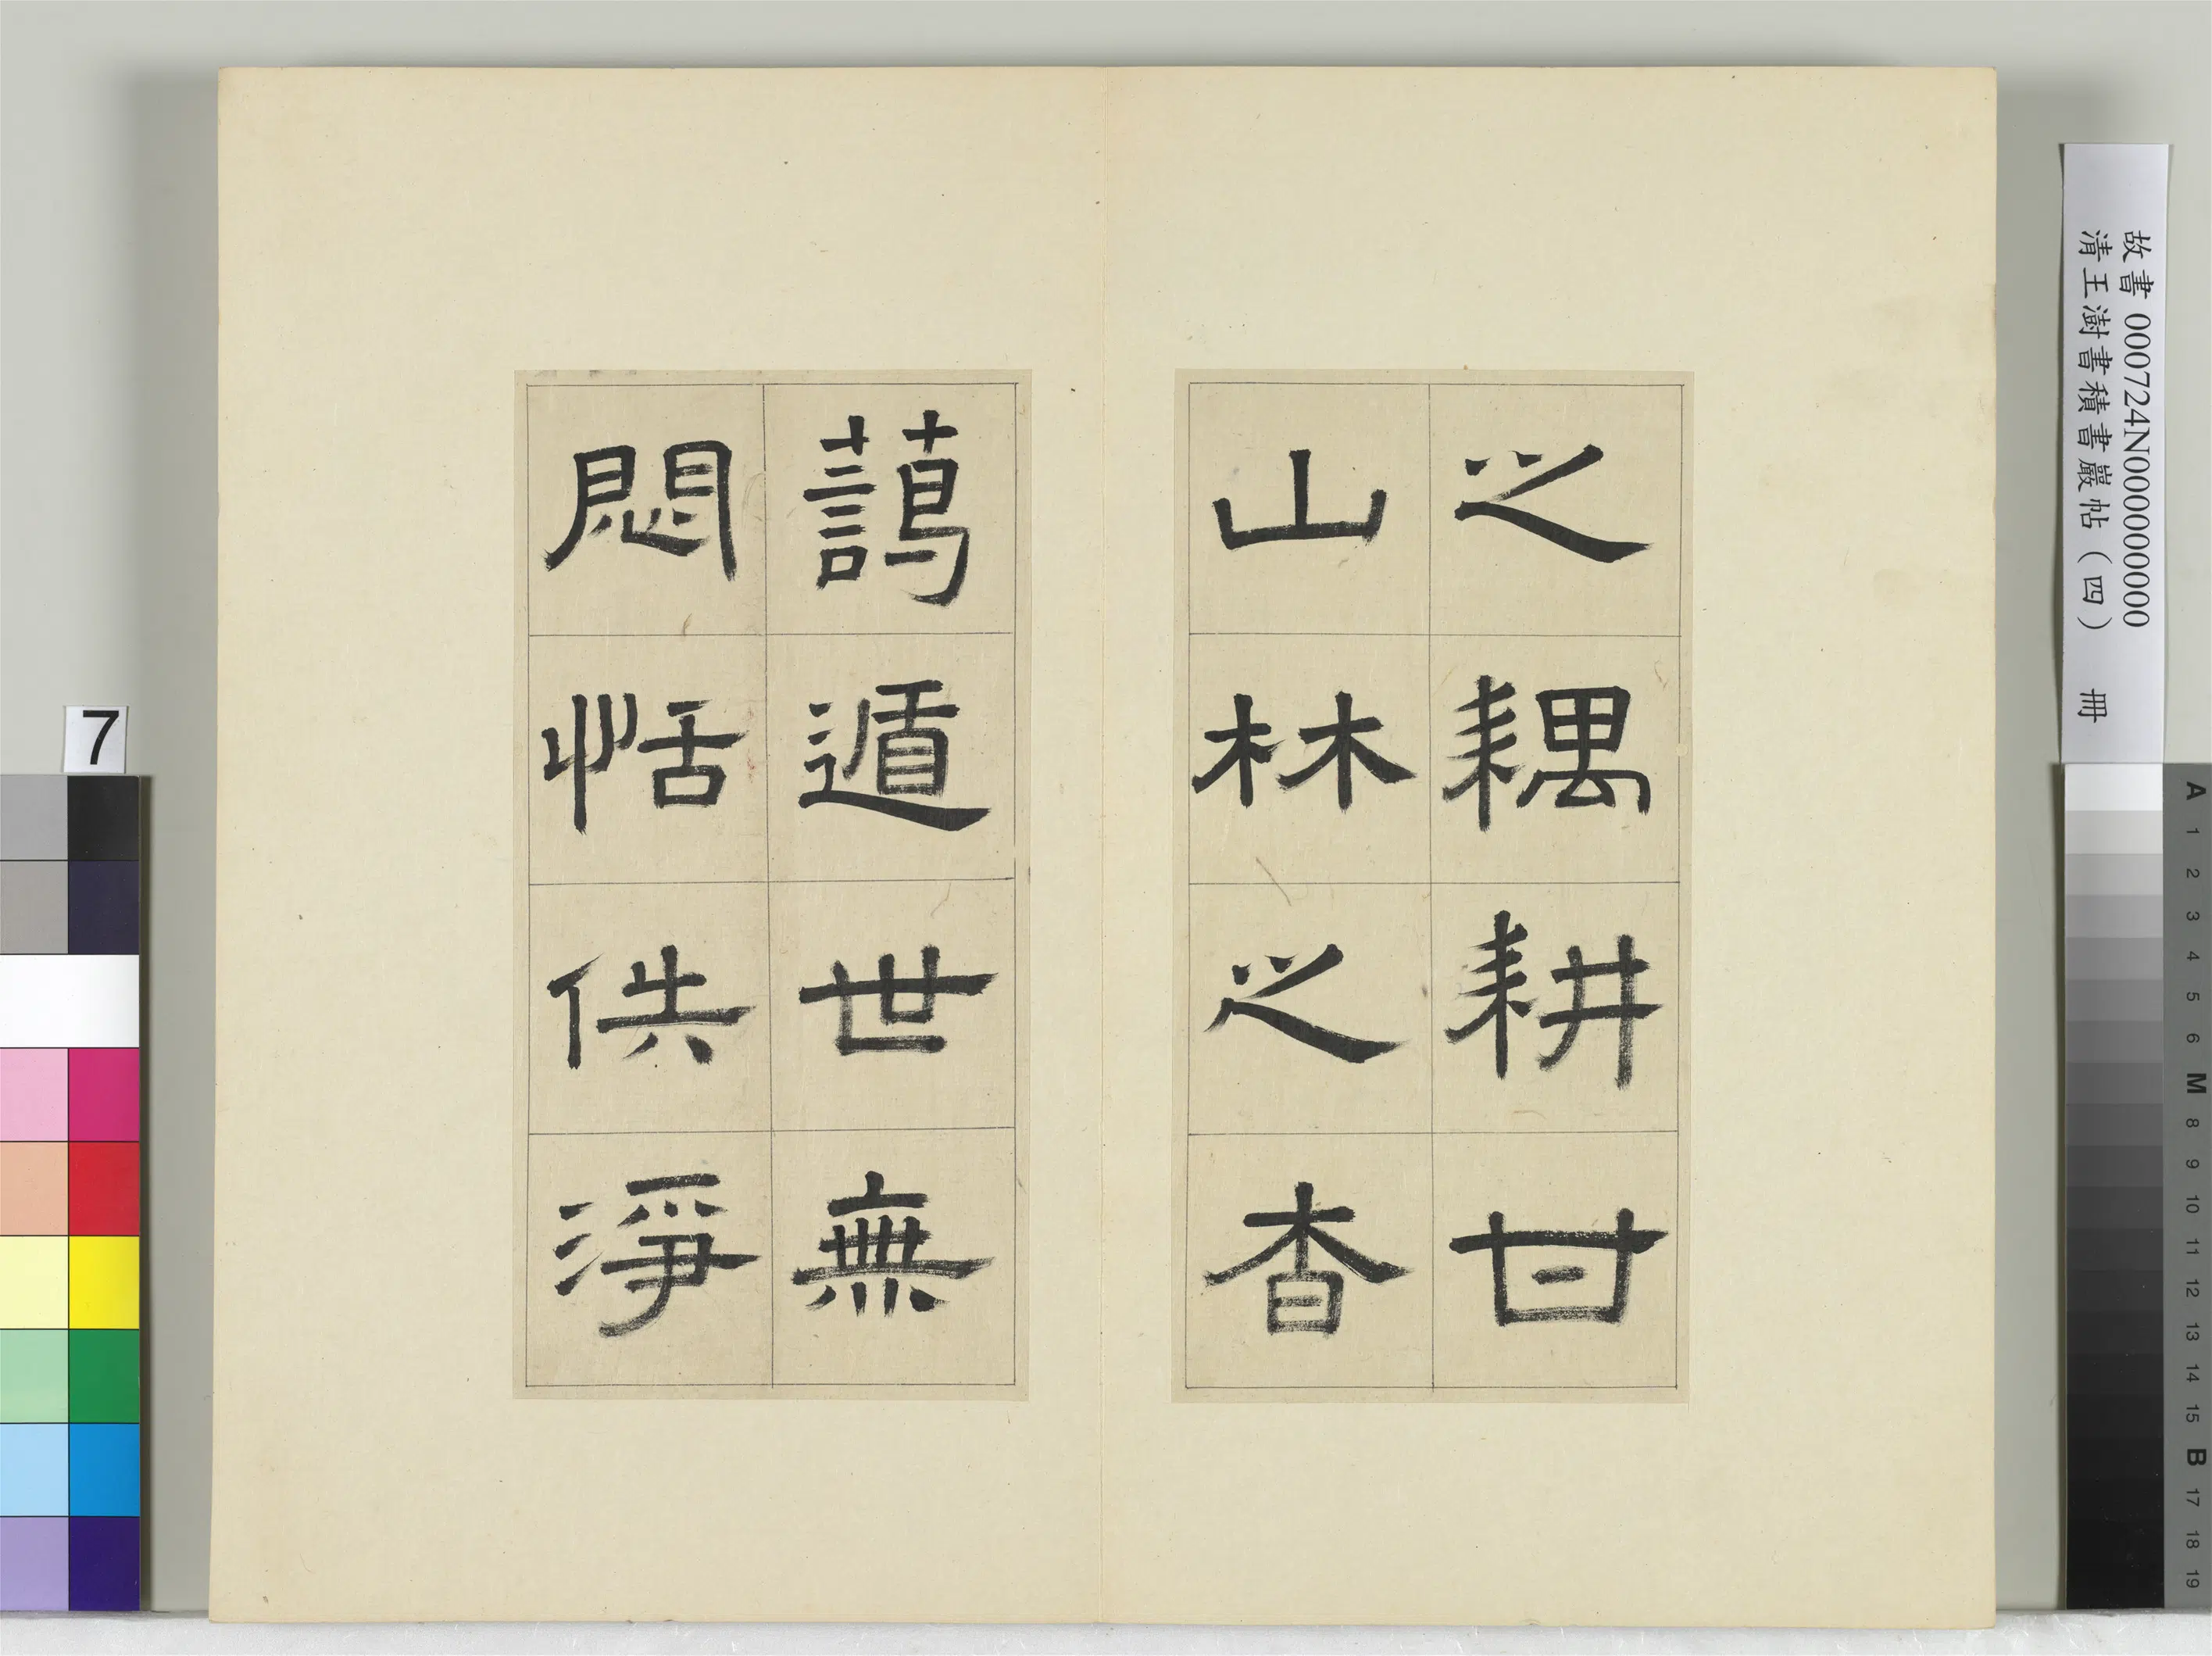 之耦耕甘
山林之杳
藹遁世無
悶恬佚淨
故書 000724N000000000
清王澍書積書巖帖（四） 冊
7
A 1 2 3 4 5 6 M 8 9 10 11 12 13 14 15 B 17 18 19